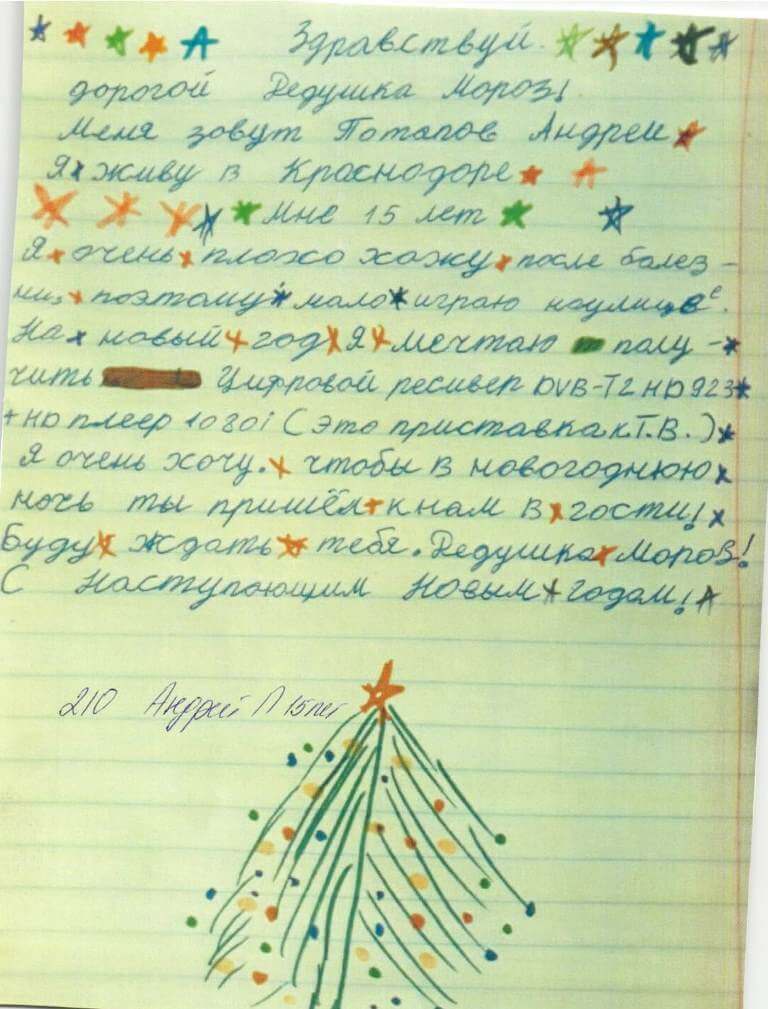 Здравствуй.
дорогой Дедушка Мороз!
Меня зовут Потапов Андреи
Я живу в Краснодоре
Мне 15 лет
Я очень плохо хажу после балез-
ни, поэтому мало играю наулице.
На новый год Я мечтаю палу-
чить Цифровой ресивер DVB-T2 HD 923
+ HD плеер 1080i (Это приставка к Т.В.)
Я очень хочу. чтобы в новогоднюю
ночь ты пришёл к нам в гости!
Буду ждать тебя. Дедушка Мороз!
С Наступающим Новым годам!
210 Андрей П 15лет